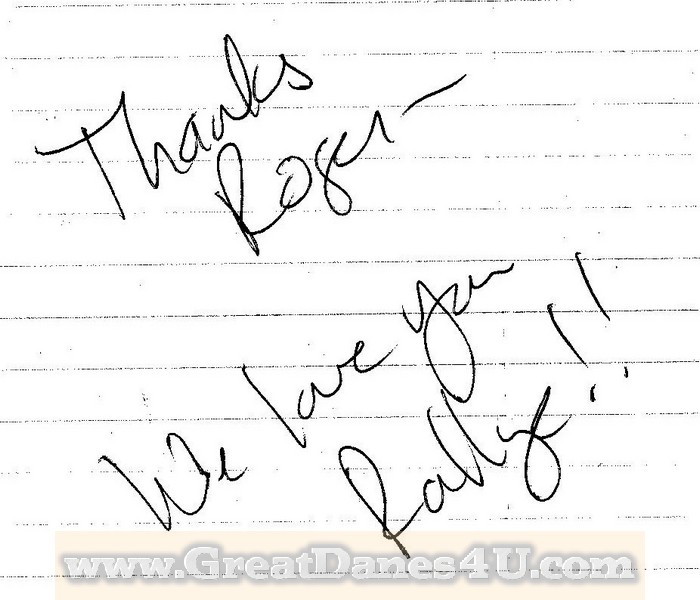 Thanks
Roger -
We love you
Rallye!!
www.GreatDanes4U.com